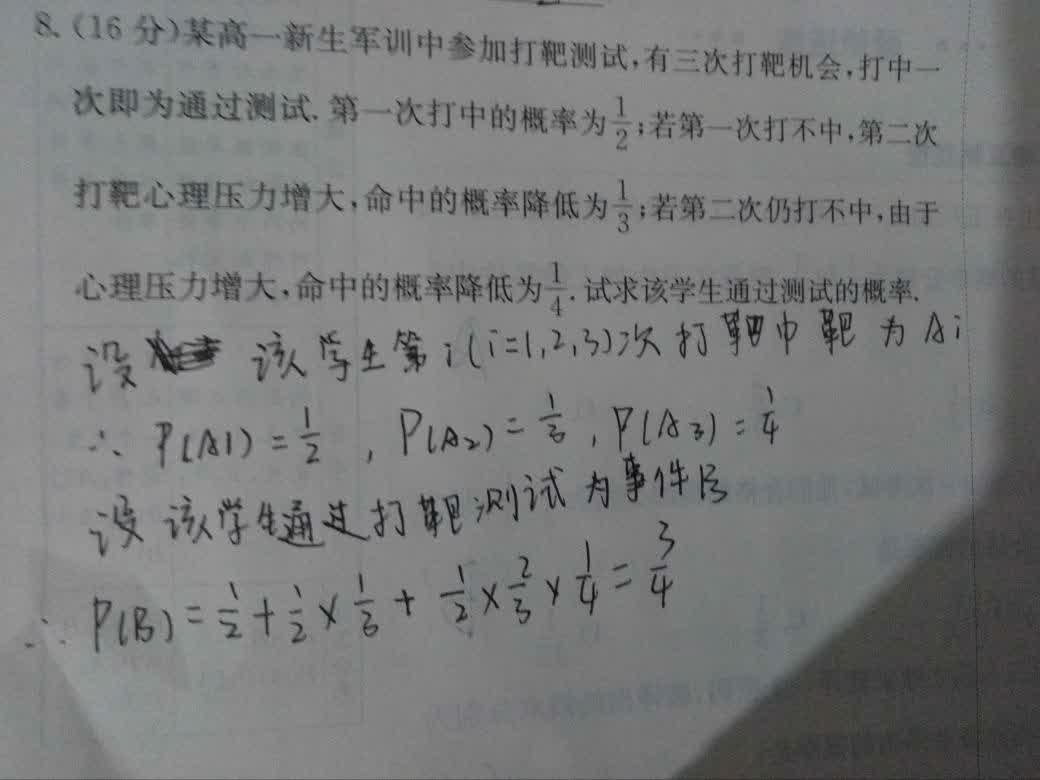 8. (16分)某高一新生军训中参加打靶测试,有三次打靶机会,打中一
次即为通过测试. 第一次打中的概率为1/2;若第一次打不中,第二次
打靶心理压力增大,命中的概率降低为1/3;若第二次仍打不中,由于
心理压力增大,命中的概率降低为1/4. 试求该学生通过测试的概率.
设 该学生第i(i=1,2,3)次打靶中靶为Ai
∴ P(A1)=1/2, P(A2)=1/3, P(A3)=1/4
设该学生通过打靶测试为事件B
∴ P(B)=1/2+1/2×1/3+1/2×2/3×1/4=3/4